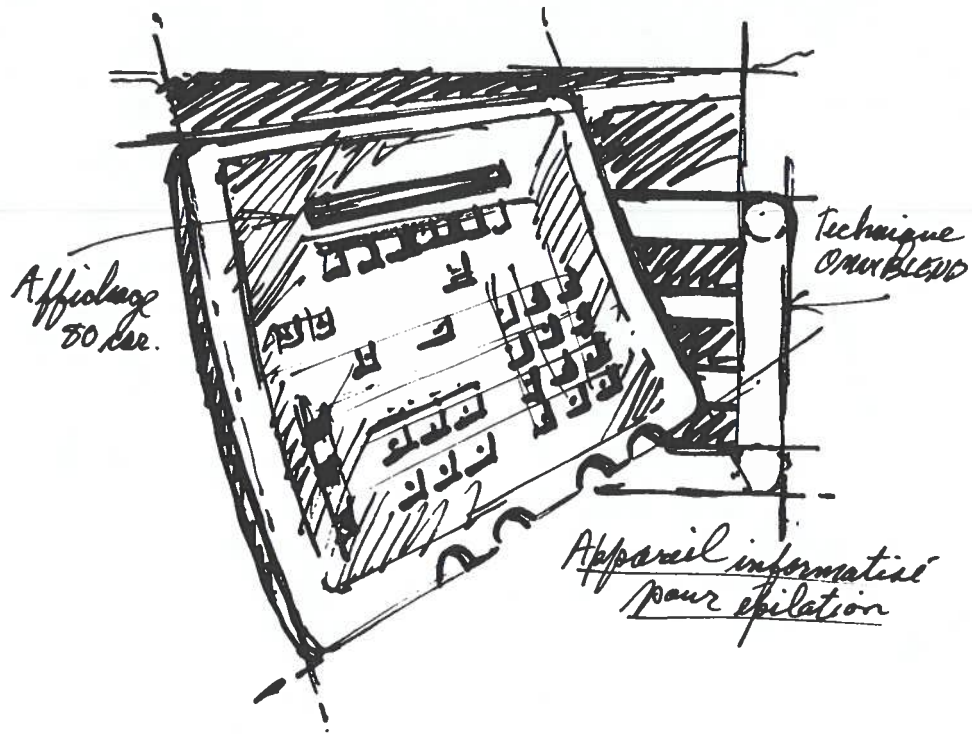 Affichage
80 car.
Technique
OMNIBLEND
Appareil informatisé
pour épilation